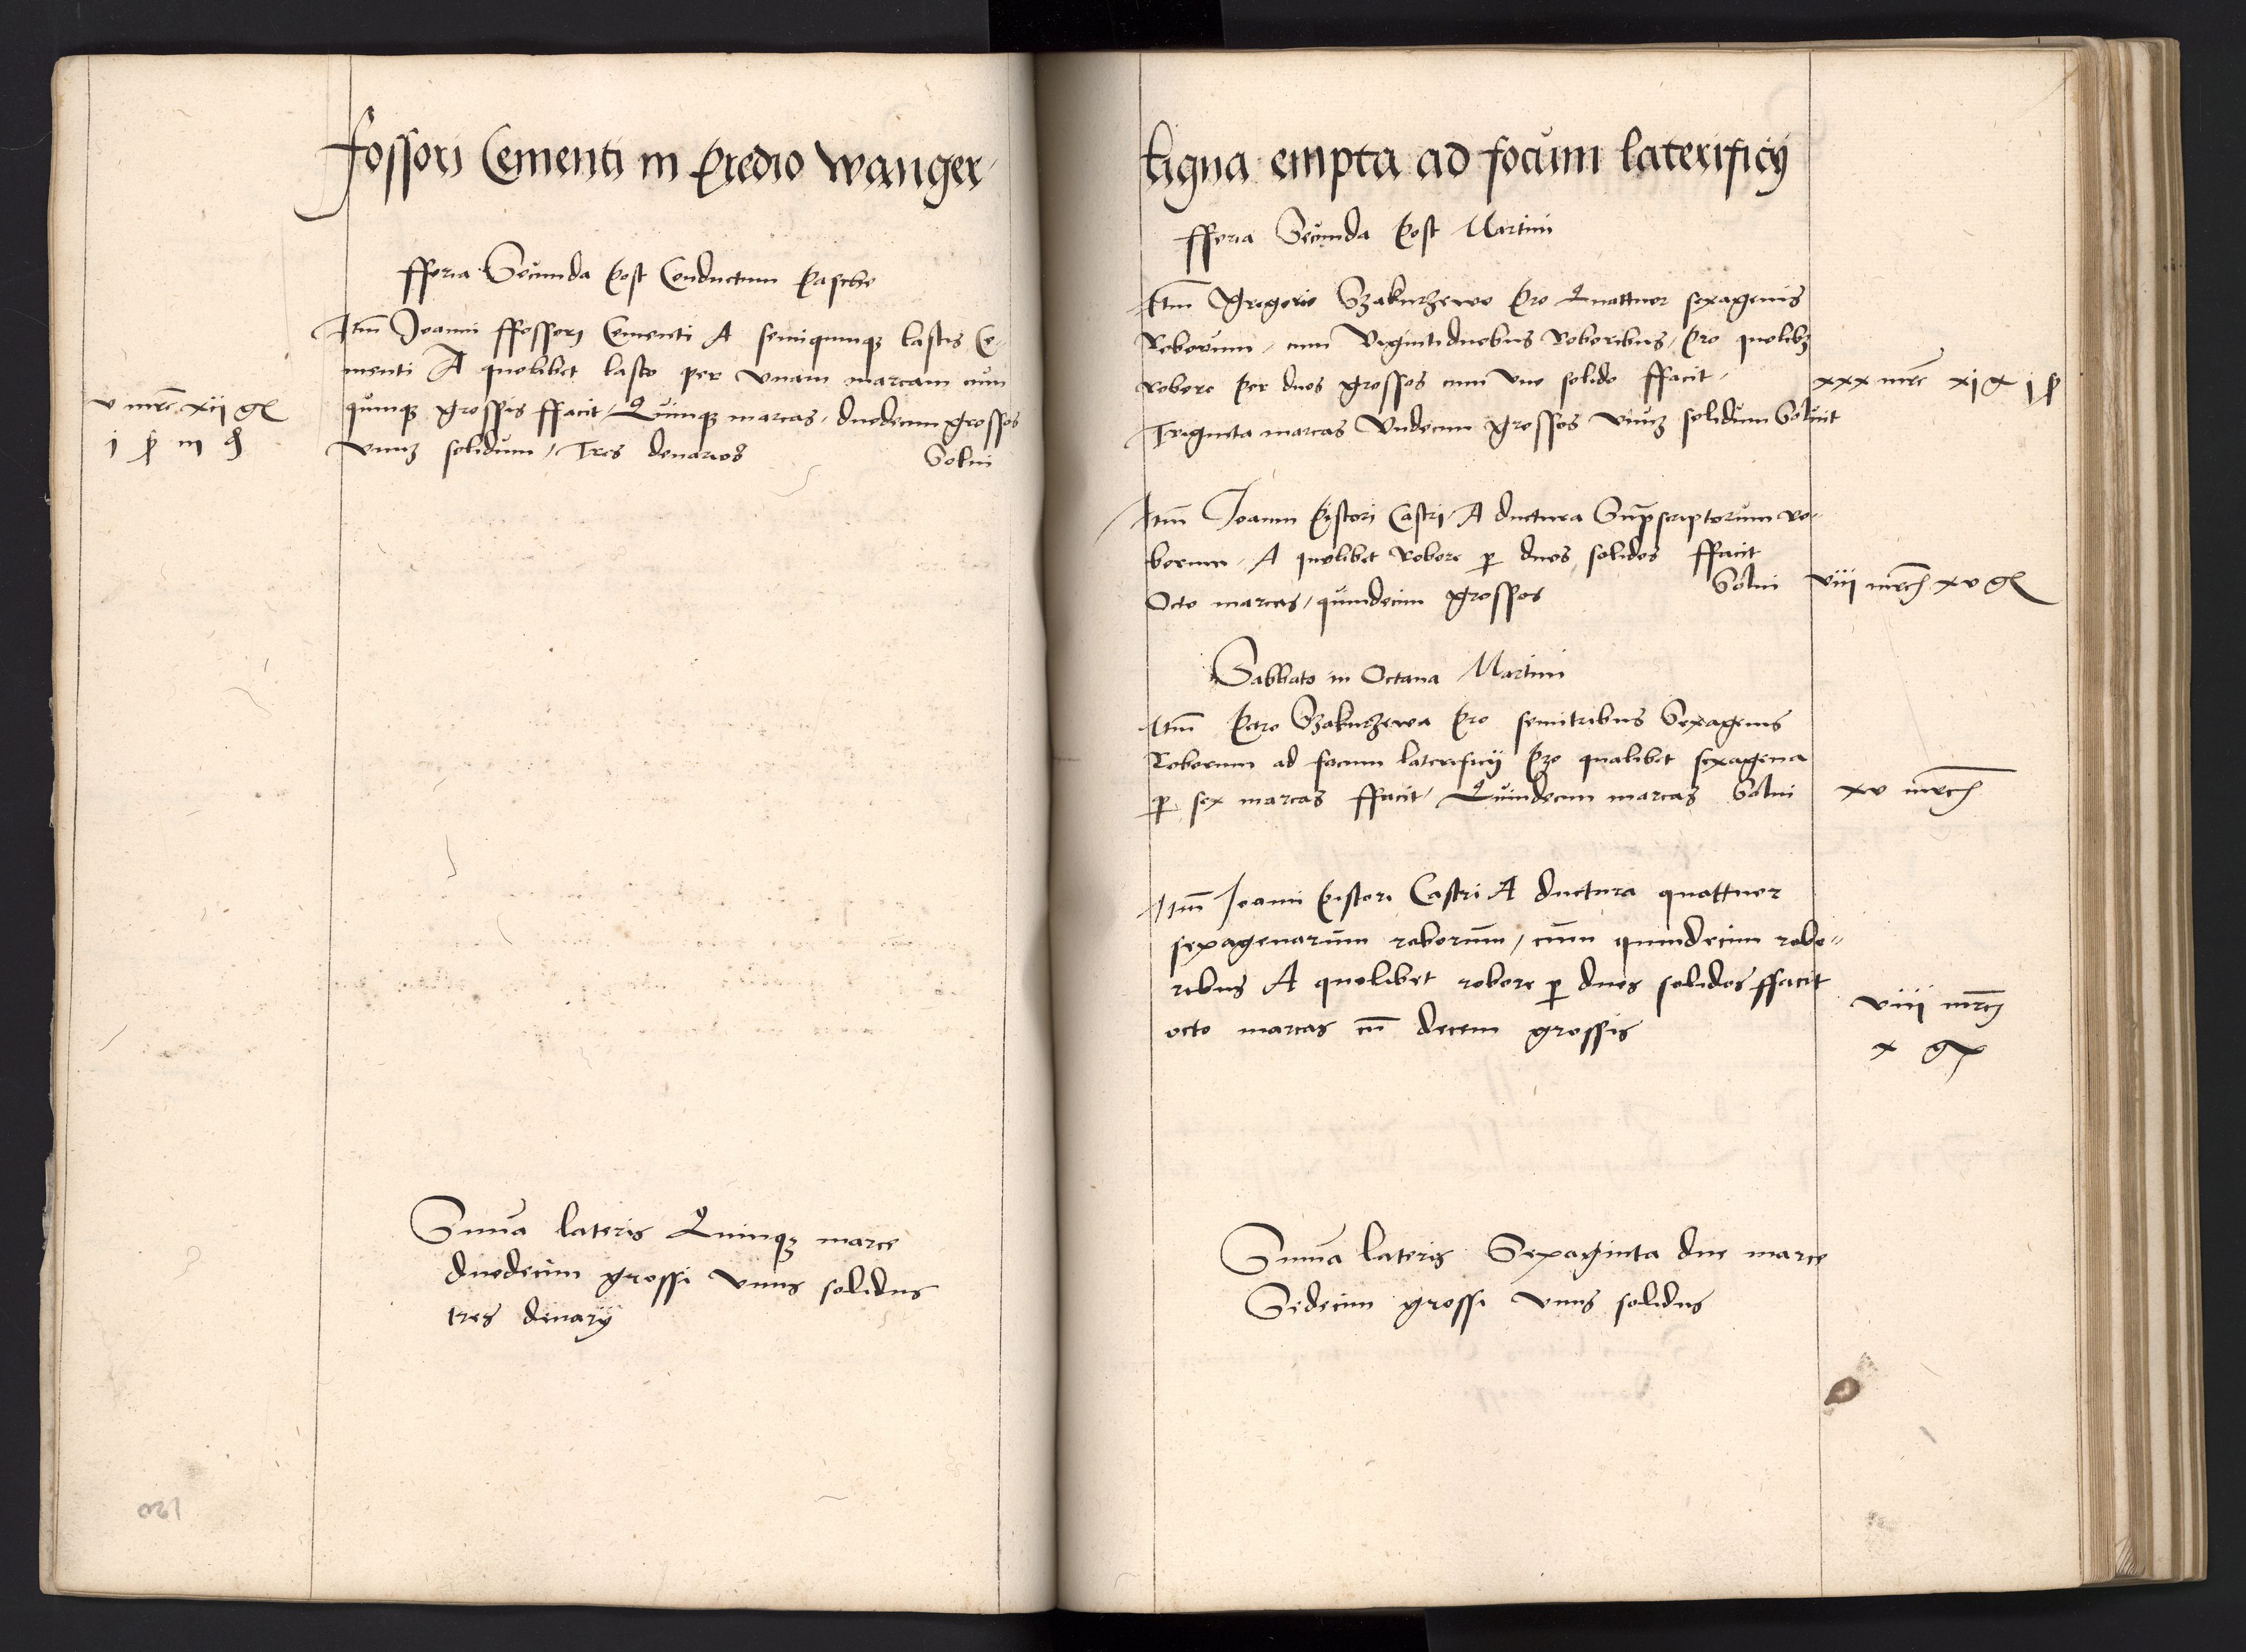 fossori Cementi in predio wanger
fferia Secunda post Conductum pasche
Itm Joanni ffossori Cementi A semiquinqz lastis Ce-
menti A quolibet lasto per vnam marcam cum
quinqz grossis ffacit Quinqz marcas, duodecim grossos
vnuz solidum, Tres denarios Solui
v mrc xij g
j ß iij d
Suma lateris Quinqz marce
duodecim grossi vnus solidus
tres denarij
120
Ligna empta ad focum laterificij
fferia Secunda post Martini
Itm Gregorio Szakurzewo pro Quattuor sexagenis
Roborum, cum Vigintiduobus roboribus, pro quolibz
robore per duos grossos cum vno solido ffacit
Triginta marcas Vndecim grossos vnuz solidum Soluit
xxx mrc xj g j ß
Itm Joanni pistori Castri A ductura Supscriptorum ro-
borum, A quolibet robore p duos solidos ffacit
Octo marcas, quindecim grossos Solui
viij mrc xv g
Sabbato in Octaua Martini
Itm petro Szakurzewa pro semitribus Sexagenis
Roborum ad focum laterificij pro qualibet sexagena
p sex marcas ffacit, Quindecim marcas Solui
xv mrc
Itm Joanni pistori Castri A ductura quattuor
sexagenarum roborum, cum quindecim robo-
ribus A quolibet robore p duos solidos ffacit
octo marcas cu decem grossis
viij mrc
x g
Suma lateris Sexaginta due marce
Sedecim grossi vnus solidus